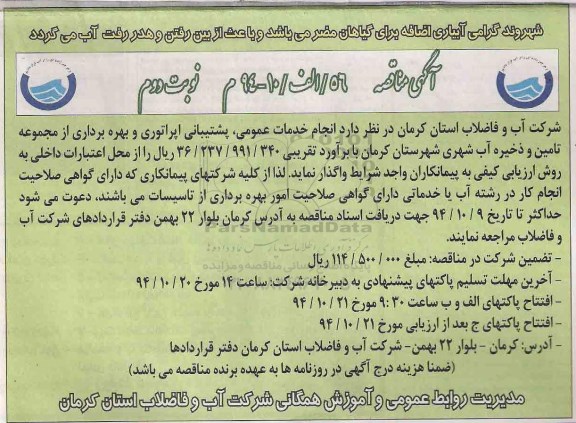 شهروند گرامی آبیاری اضافه برای گیاهان مضر می باشد و باعث از بین رفتن و هدر رفت آب می گردد
آگهی مناقصه ۵۶/الف/۱۰-۹۴ م نوبت دوم
شرکت آب و فاضلاب استان کرمان در نظر دارد انجام خدمات عمومی، پشتیبانی اپراتوری و بهره برداری از مجموعه
تامین و ذخیره آب شهری شهرستان کرمان با برآورد تقریبی ۳۶/۲۳۷/۹۹۱/۳۴۰ ریال را از محل اعتبارات داخلی به
روش ارزیابی کیفی به پیمانکاران واجد شرایط واگذار نماید. لذا از کلیه شرکتهای پیمانکاری که دارای گواهی صلاحیت
انجام کار در رشته آب یا خدماتی دارای گواهی صلاحیت امور بهره برداری از تاسیسات می باشند، دعوت می شود
حداکثر تا تاریخ ۹۴/۱۰/۹ جهت دریافت اسناد مناقصه به آدرس کرمان بلوار ۲۲ بهمن دفتر قراردادهای شرکت آب
و فاضلاب مراجعه نمایند.
ParsNamadData
- تضمین شرکت در مناقصه: مبلغ ۱۱۴/۵۰۰/۰۰۰ ریال
- آخرین مهلت تسلیم پاکتهای پیشنهادی به دبیرخانه شرکت: ساعت ۱۴ مورخ ۹۴/۱۰/۲۰
- افتتاح پاکتهای الف و ب ساعت ۹:۳۰ مورخ ۹۴/۱۰/۲۱
- افتتاح پاکتهای ج بعد از ارزیابی مورخ ۹۴/۱۰/۲۱
- آدرس: کرمان - بلوار ۲۲ بهمن- شرکت آب و فاضلاب استان کرمان دفتر قراردادها
(ضمنا هزینه درج آگهی در روزنامه ها به عهده برنده مناقصه می باشد)
مدیریت روابط عمومی و آموزش همگانی شرکت آب و فاضلاب استان کرمان